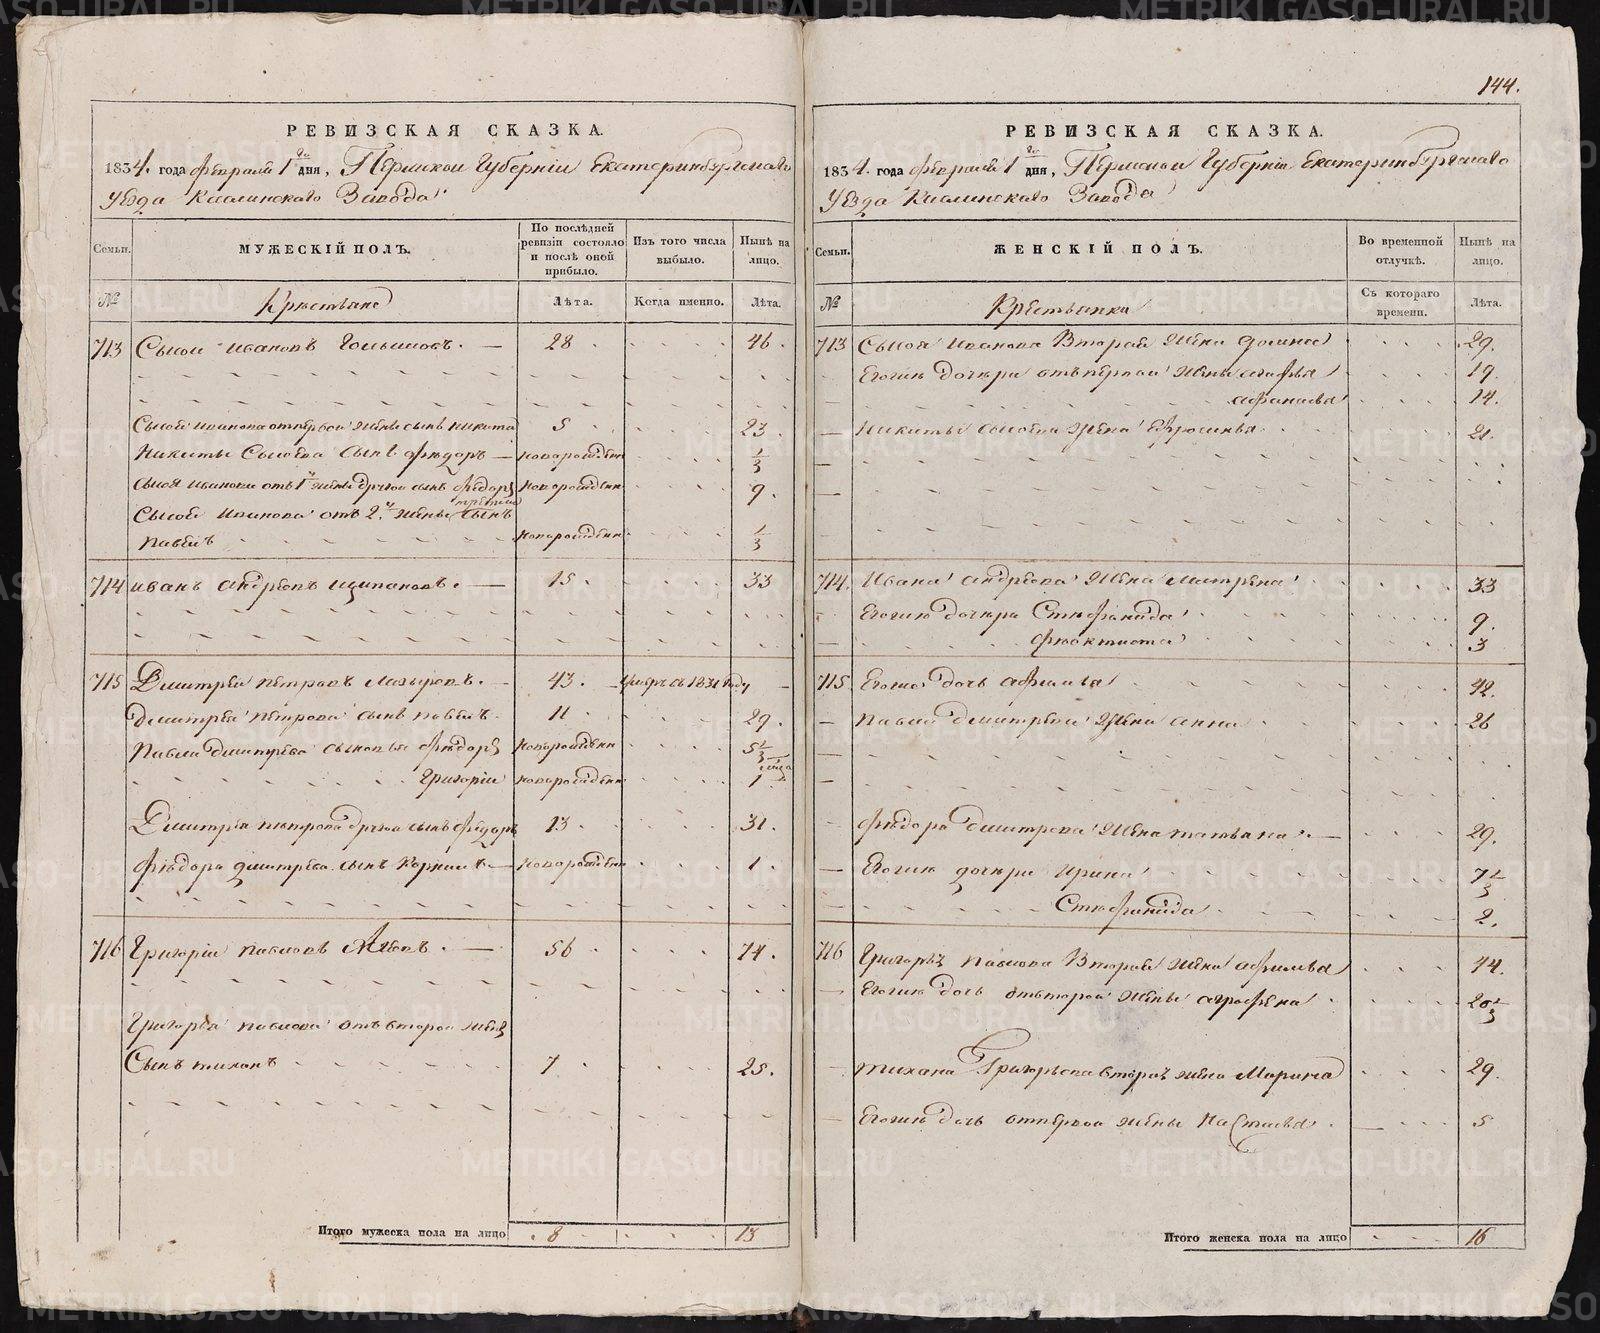 144.
РЕВИЗСКАЯ СКАЗКА.
1834. года февраля 1го дня, Пермской Губернии Екатеринбургскаго
уезда Каслинскаго Завода
Семьи. МУЖЕСКІЙ ПОЛЪ. По послѣдней ревизіи состояло и послѣ оной прибыло. Изъ того числа выбыло. Нынѣ на лицо.
№ Крестьяне Лѣта. Когда именно. Лѣта.
713 Сысой Ивановъ 28 46.
Сысоя Иванова отпервой жены сынъ Никита 5 23
Никиты Сысоева сынъ Федоръ новорожденн 1/3
Сысоя Иванова отъ 1й жены другой сынъ Федоръ новорожденн 9.
Сысоя Иванова отъ 2й жены третий сынъ
Павелъ новорожденн 1/3
714 Иванъ Андреевъ 15 33
715 Дмитрей Петровъ 43. умеръ въ 1831 году
Дмитрея Петрова сынъ Павелъ 11 29.
Павла Дмитрева сыновья Федоръ новорожденн 5 1/3
Григорий новорожденн 1
Дмитрея Петрова другой сынъ Федоръ 13 31.
Федора Дмитрева сынъ Корнилъ новорожденн 1.
716 Григорий Павловъ 56 74.
Григорья Павлова отъ второй жены
Сынъ Тихонъ 7 25.
Итого мужеска пола на лицо 8 13
РЕВИЗСКАЯ СКАЗКА.
1834. года февраля 1го дня, Пермской Губернии Екатеринбургскаго
уезда Каслинскаго Завода
Семьи. ЖЕНСКІЙ ПОЛЪ. Во временной отлучкѣ. Нынѣ на лицо.
№ Крестьянки Съ котораго времени. Лѣта.
713 Сысоя Иванова вторая жена Домна 29.
Егоже дочери отъ первой жены Агафья 19.
Афанасья 14.
Никиты Сысоева жена Ефросинья 21.
714. Ивана Андреева жена Матрена 33
Егоже дочери Стефанида 9.
Феоктиста 3
715 Егоже дочь Афимья 42.
Павла Дмитрева жена Анна 26
Федора Дмитрева жена Татьяна 29.
Егоже дочери Ирина 7 1/3
Стефанида 2.
716 Григорья Павлова вторая жена Афимья 44.
Егоже дочь отвторой жены Аграфена 20 1/3
Тихона Григорьева вторая жена Марина 29.
Егоже дочь отпервой жены Настасья 5
Итого женска пола на лицо 16
METRIKI.GASO-URAL.RU